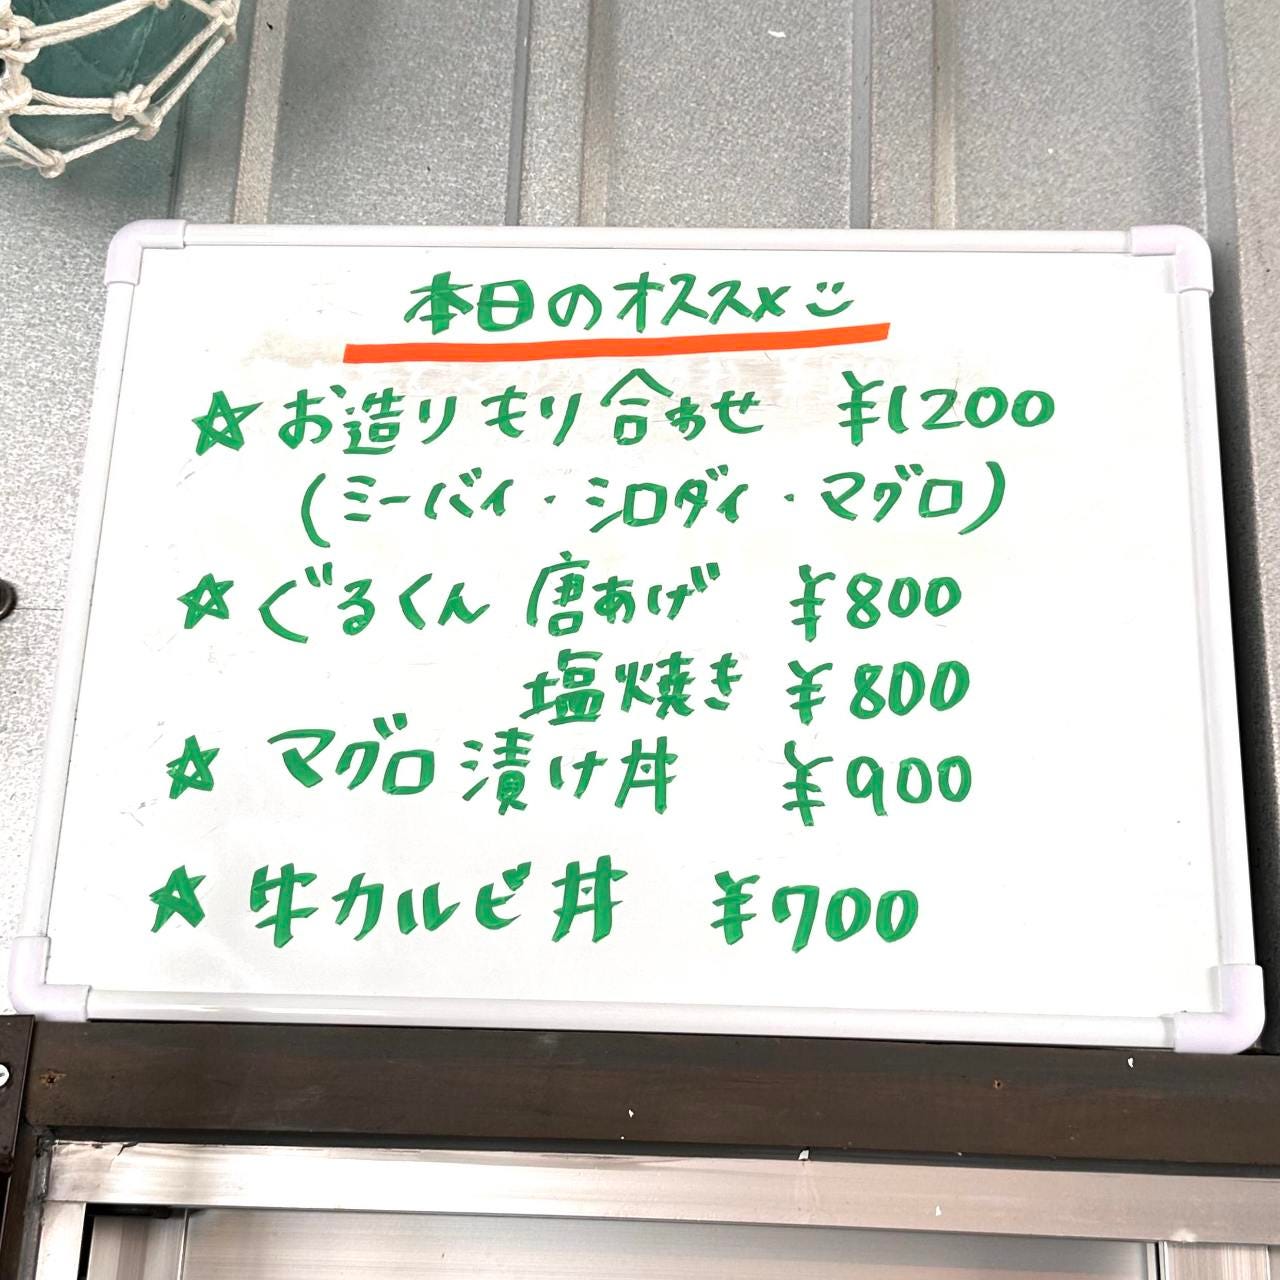 本日のオススメ
☆お造りもり合わせ ¥1200
(ミーバイ・シロダイ・マグロ)
☆ぐるくん 唐あげ ¥800
塩焼き ¥800
☆マグロ漬け丼 ¥900
☆牛カルビ丼 ¥700